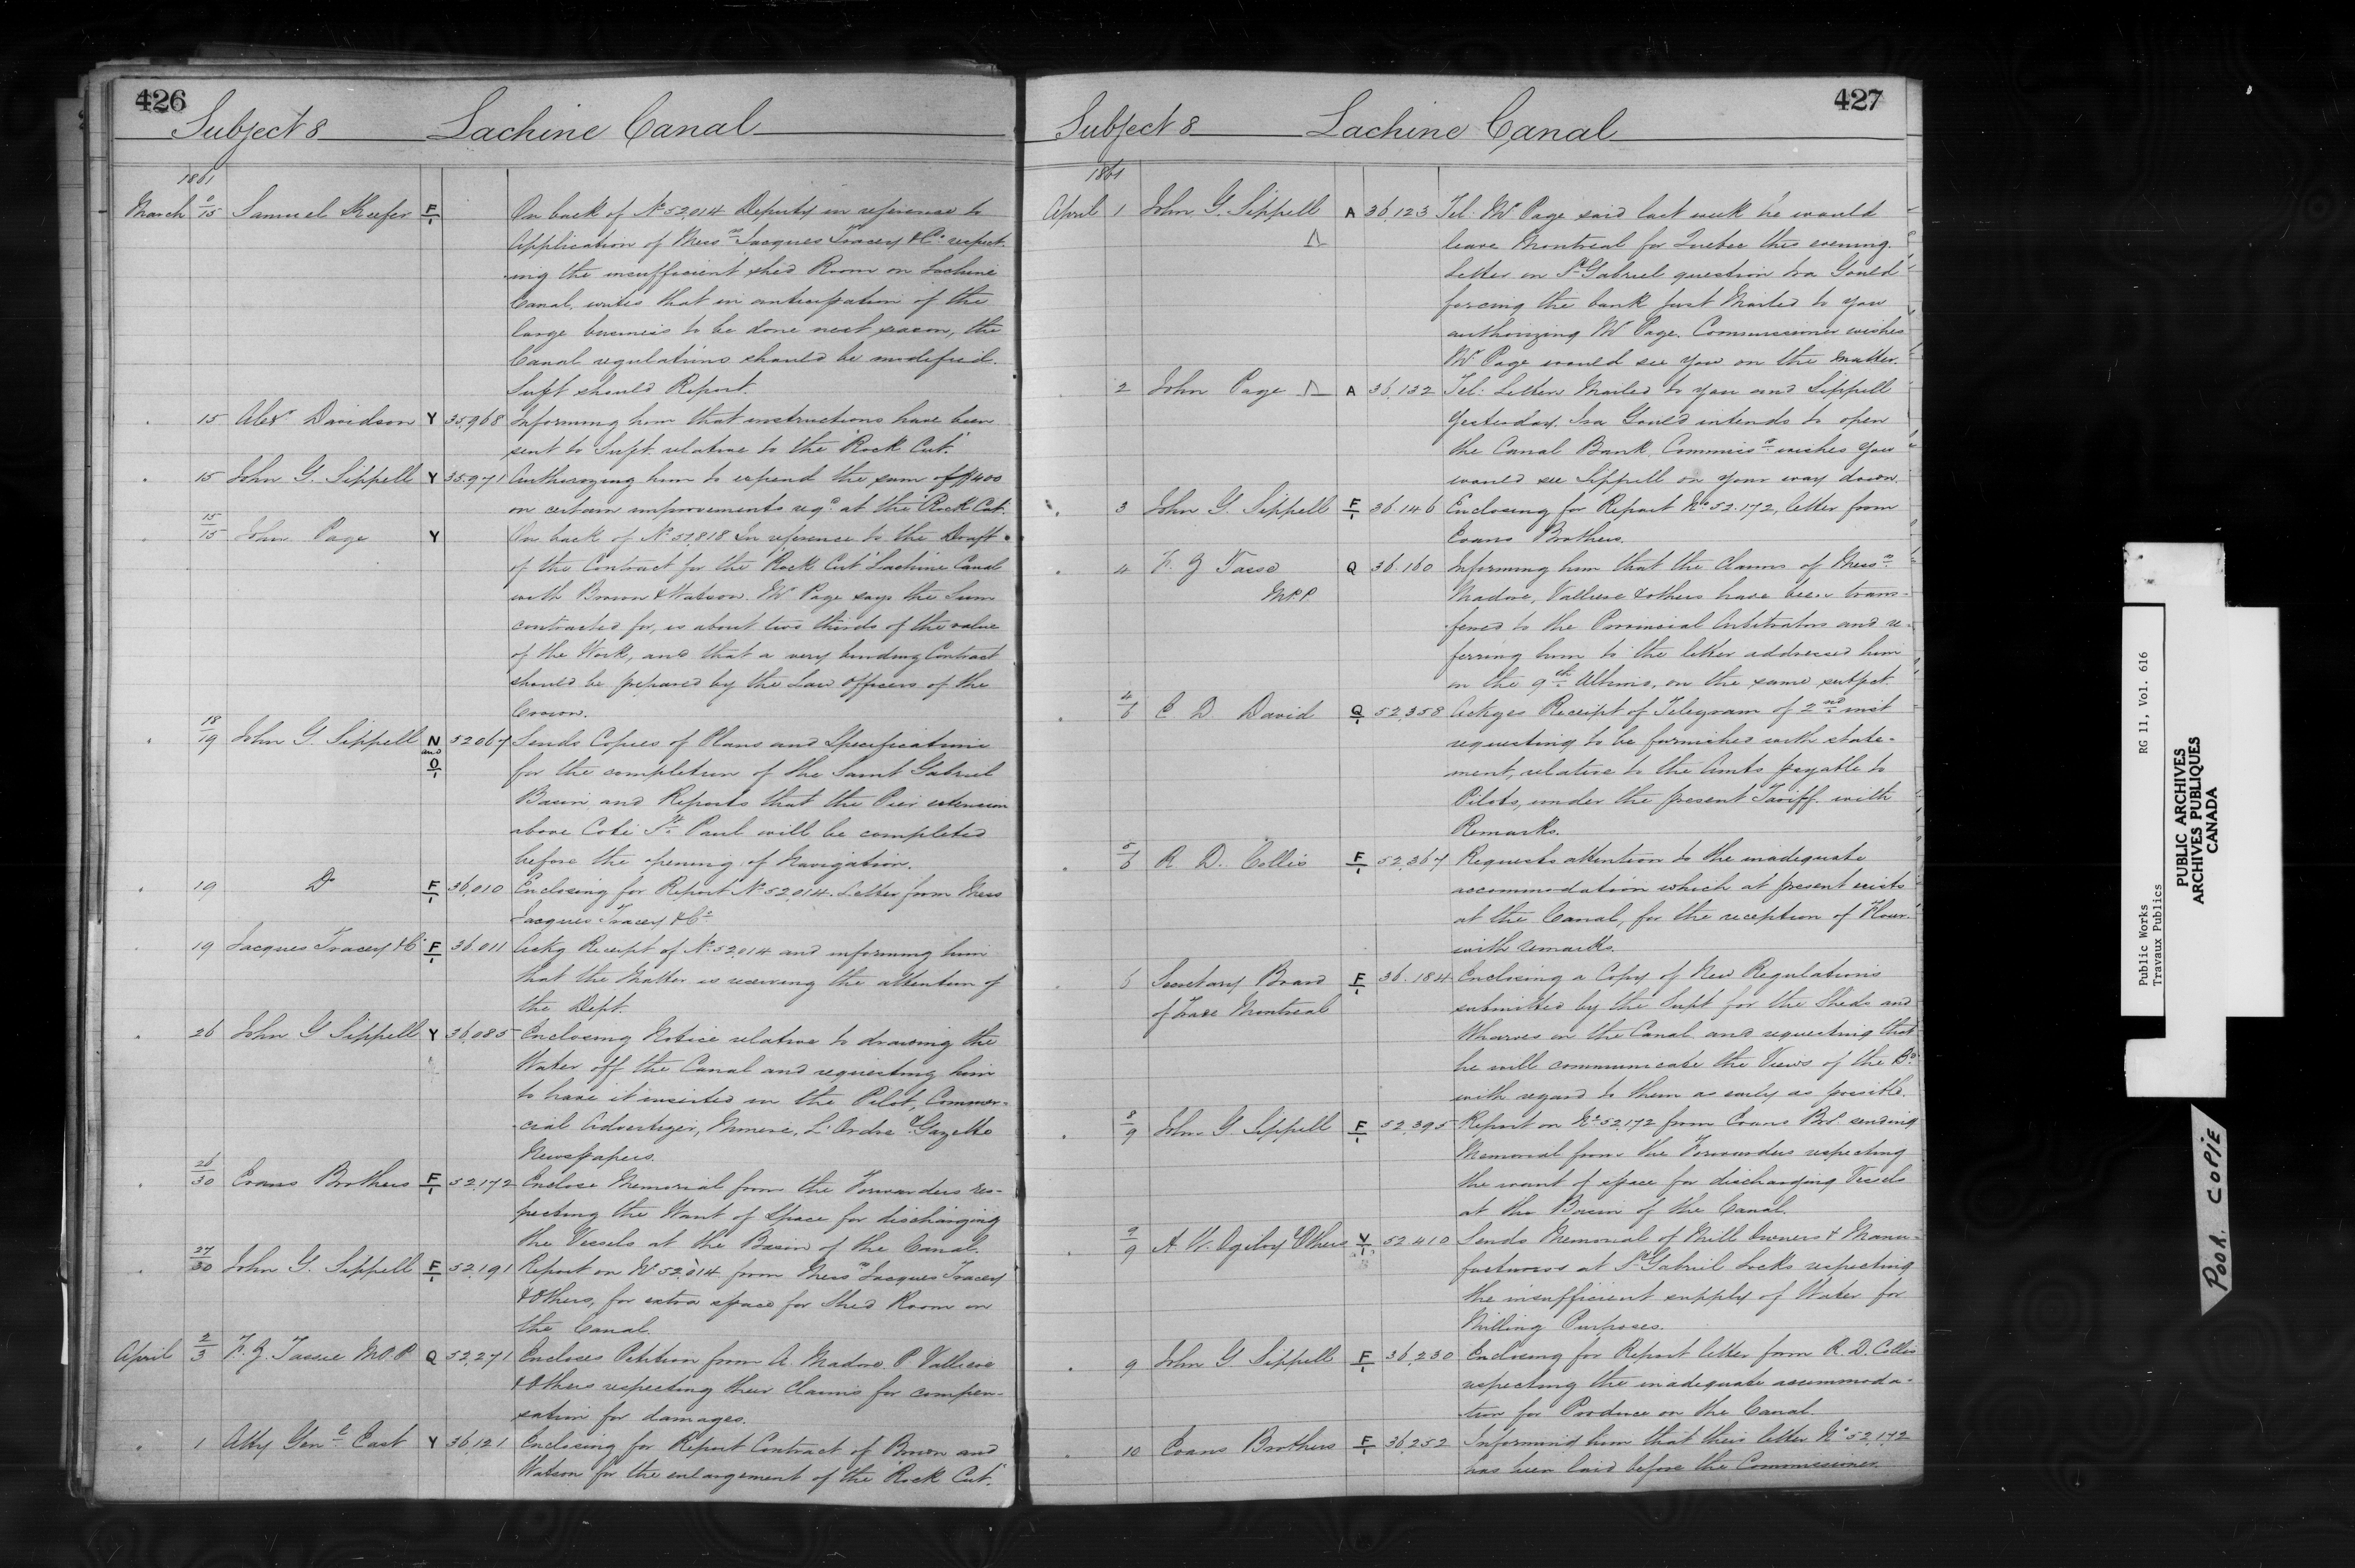 426
Subject 8 Lachine Canal
1861
March 9/15 Samuel Keefer F/1 On back of No 52,014 Deputy in reference to
Application of Messrs Jacques Tracey & Co respect-
ing the insufficient shed Room on Lachine
Canal, writes that in anticipation of the
large business to be done next season, the
Canal regulations should be modified.
Supt should Report.
15 Alexr Davidson Y 35,968 Informing him that instructions have been
sent to Supt. relative to the "Rock Cut."
15 John G. Sippell Y 35,971 Authorizing him to expend the sum of $400
on certain improvements reqd at the "Rock Cut.
15/15 John Page Y On back of No 51,818 In reference to the Draft
of the Contract for the "Rock Cut" Lachine Canal
with Brown & Watson. Mr Page says the Sum
contracted for, is about two thirds of the value
of the Work, and that a very binding Contract
should be prepared by the Law Officers of the
Crown.
18/19 John G. Sippell N and O/1 52067 Sends Copies of Plans and Specifications
for the completion of the Saint Gabriel
Basin, and Reports that the Pier extension
above Coté St. Paul will be completed
before the opening of Navigation.
19 Do F/1 36,010 Enclosing for Report No 52,014. Letter from Mess
Jacques Tracey & Co
19 Jacques Tracey & Co F/1 36,011 Ackg Receipt of No 52,014 and informing him
that the Matter is receiving the attention of
the Dept.
26 John G Sippell Y 36,085 Enclosing Notice relative to drawing the
Water off the Canal and requesting him
to have it inserted in the Pilot, Commer-
cial Advertizer, Minerve, L'Ordre & Gazette
Newspapers.
26/30 Evans Brothers F/1 52,172 Enclose Memorial from the Forwarders res-
pecting the Want of Space for discharging
the Vessels at the Basin of the Canal.
27/30 John G. Sippell F/1 52,191 Report on No 52,014 from Messrs Jacques Tracey
& Others, for extra space for Shed Room on
the Canal.
April 2/3 F. Z. Tassie M.P.P. Q 52,271 Encloses Petition from A. Madore P. Valliere
& Others respecting their Claims for compen-
sation for damages.
1 Atty Genl East Y 36,121 Enclosing for Report Contract of Brown and
Watson for the enlargement of the "Rock Cut."
427
Subject 8 Lachine Canal
1861
April 1 John G. Sippell A 36,123 Tel: Mr Page said last week he would
leave Montreal for Quebec this evening.
Letter on St Gabriel question Ira Gould
forcing the bank just Mailed to you
authorizing Mr Page. Commissioner wishes
Mr Page would see you on the matter.
2 John Page A 36,132 Tel: Letter Mailed to you and Sippell
Yesterday. Ira Gould intends to open
the Canal Bank. Commissr wishes you
would see Sippell on your way down.
3 John G. Sippell F/1 36.146 Enclosing for Report No 52.172, letter from
Evans Brothers.
4 F. Z Tassé Q 36.160 Informing him that the Claims of Messrs
M.P.P. Madore, Valliere & others have been trans-
ferred to the Provincial Arbitrators and re-
ferring him to the letter addressed him
on the 9th Ultimo, on the same subject.
4/6 E D. David Q/1 52,358 Ackges Receipt of Telegram of 2nd inst
requesting to be furnished with state-
ment, relative to the Amts payable to
Pilots, under the present Tariff. with
Remarks.
5/6 R. D. Collis F/1 52,367 Requests attention to the inadequate
accommodation which at present exists
at the Canal, for the reception of Flour.
with remarks.
6 Secretary Board F/1 36.184 Enclosing a Copy of New Regulations
of Trade Montreal submitted by the Supt for the Sheds and
Wharves in the Canal and requesting that
he will communicate the Views of the Bd
with regard to them as early as possible.
8/9 John G. Sippell F/1 52,395 Report on No 52,172 from Evans Bros. sending
Memorial from the Forwarders respecting
the want of space for discharging Vessels
at the Basin of the Canal.
9/9 A. W. Ogilvy & Others V/1 52410 Sends Memorial of Mill Owners & Manu-
facturers at St Gabriel Locks respecting
the insufficient supply of Water for
Milling Purposes.
9 John G Sippell F/1 36,230 Enclosing for Report letter from R. D. Collis
respecting the inadequate accommoda-
tion for Produce on the Canal.
10 Evans Brothers F/1 36,252 Informing him that their letter No 52,172
has been laid before the Commissioner.
Public Works RG 11, Vol. 616
Travaux Publics
PUBLIC ARCHIVES
ARCHIVES PUBLIQUES
CANADA
POOR COPIE